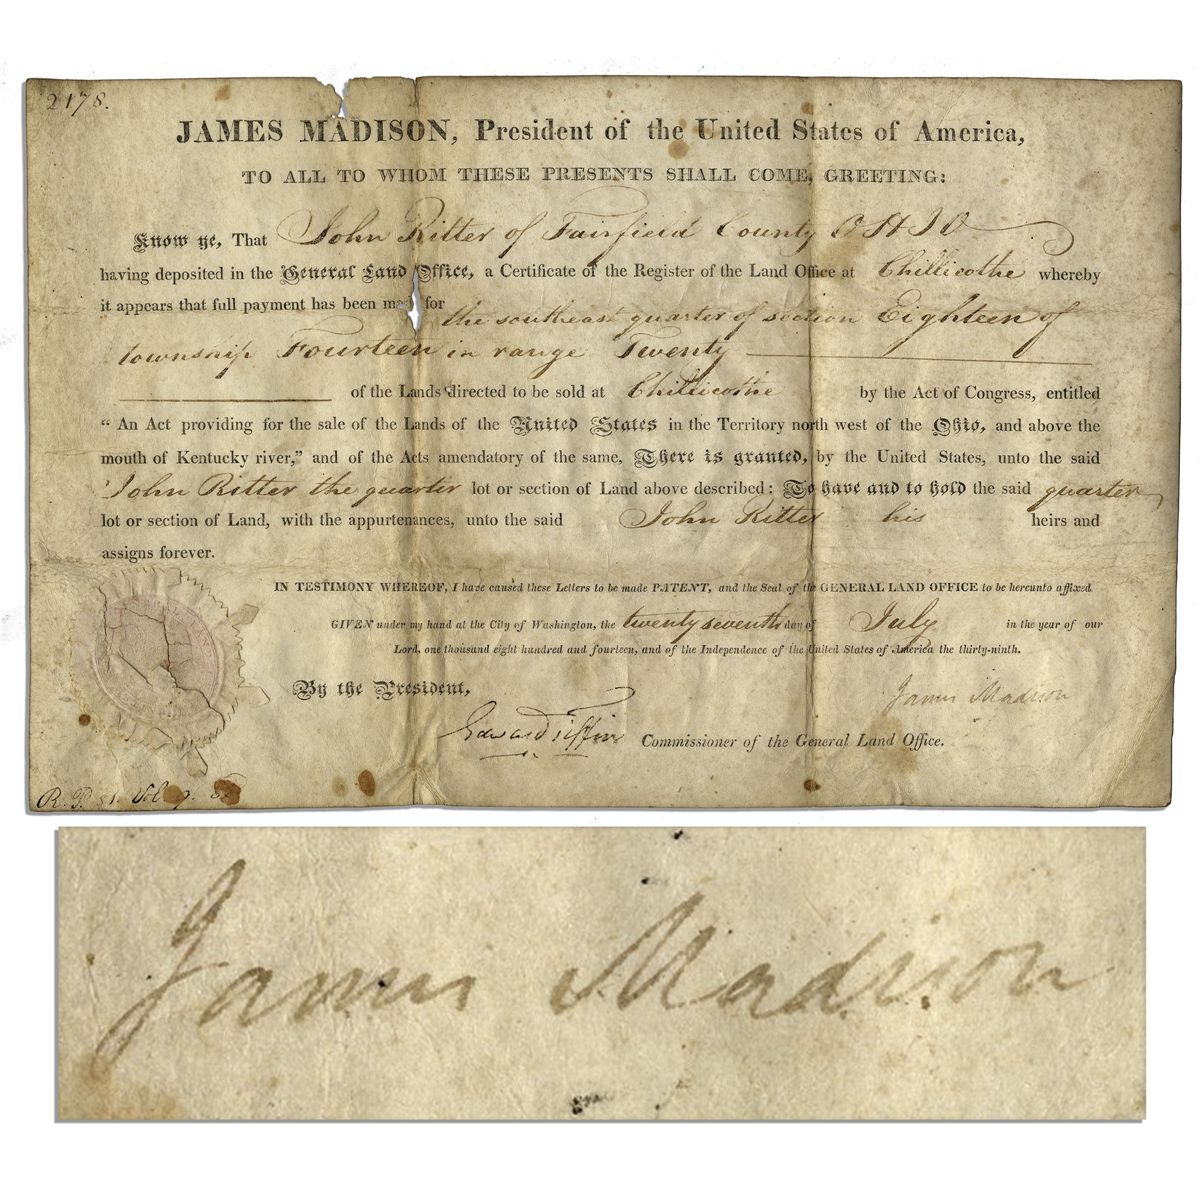 2178.
JAMES MADISON, President of the United States of America,
TO ALL TO WHOM THESE PRESENTS SHALL COME, GREETING:
Know ye, That John Ritter of Fairfield County OHIO
having deposited in the General Land Office, a Certificate of the Register of the Land Office at Chillicothe whereby
it appears that full payment has been made for the southeast quarter of section Eighteen of
township Fourteen in range Twenty
of the Lands directed to be sold at Chillicothe by the Act of Congress, entitled
“An Act providing for the sale of the Lands of the United States in the Territory north west of the Ohio, and above the
mouth of Kentucky river,” and of the Acts amendatory of the same, There is granted, by the United States, unto the said
John Ritter the quarter lot or section of Land above described: To have and to hold the said quarter
lot or section of Land, with the appurtenances, unto the said John Ritter his heirs and
assigns forever.
IN TESTIMONY WHEREOF, I have caused these Letters to be made PATENT, and the Seal of the GENERAL LAND OFFICE to be hereunto affixed.
GIVEN under my hand at the City of Washington, the twenty seventh day of July in the year of our
Lord, one thousand eight hundred and fourteen, and of the Independence of the United States of America the thirty-ninth.
By the President,
James Madison
Edward Tiffin Commissioner of the General Land Office.
James Madison